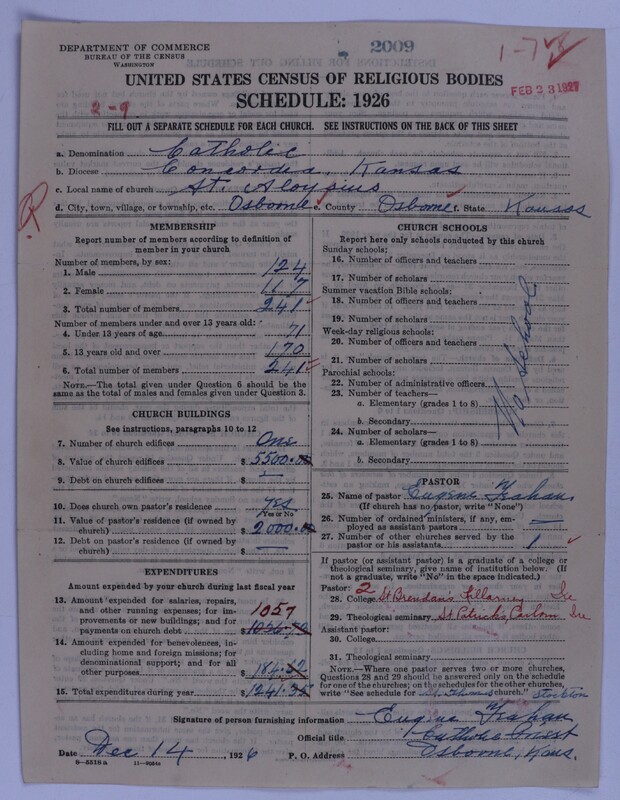 DEPARTMENT OF COMMERCE
BUREAU OF THE CENSUS
WASHINGTON
2009
1-7
FEB 23 1927
UNITED STATES CENSUS OF RELIGIOUS BODIES
SCHEDULE: 1926
2-9
FILL OUT A SEPARATE SCHEDULE FOR EACH CHURCH. SEE INSTRUCTIONS ON THE BACK OF THIS SHEET
a. Denomination Catholic
b. Diocese Concordia, Kansas
c. Local name of church St. Aloysius
d. City, town, village, or township, etc. Osborne e. County Osborne f. State Kansas
MEMBERSHIP
Report number of members according to definition of member in your church
Number of members, by sex:
1. Male 124
2. Female 117
3. Total number of members 241
Number of members under and over 13 years old:
4. Under 13 years of age 71
5. 13 years old and over 170
6. Total number of members 241
NOTE.—The total given under Question 6 should be the same as the total of males and females given under Question 3.
CHURCH BUILDINGS
See instructions, paragraphs 10 to 12
7. Number of church edifices One
8. Value of church edifices $ 5500.00
9. Debt on church edifices $ —
10. Does church own pastor's residence Yes
Yes or No
11. Value of pastor's residence (if owned by church) $ 2000.00
12. Debt on pastor's residence (if owned by church) $ —
EXPENDITURES
Amount expended by your church during last fiscal year
13. Amount expended for salaries, repairs, and other running expenses; for improvements or new buildings; and for payments on church debt $ 1057
14. Amount expended for benevolences, including home and foreign missions; for denominational support; and for all other purposes $ 184
15. Total expenditures during year $ 1241
CHURCH SCHOOLS
Report here only schools conducted by this church
Sunday schools:
16. Number of officers and teachers
17. Number of scholars
Summer vacation Bible schools:
18. Number of officers and teachers
19. Number of scholars
Week-day religious schools:
20. Number of officers and teachers
21. Number of scholars
Parochial schools:
22. Number of administrative officers
23. Number of teachers—
a. Elementary (grades 1 to 8)
b. Secondary
24. Number of scholars—
a. Elementary (grades 1 to 8)
b. Secondary
No School
PASTOR
25. Name of pastor Eugene
(If church has no pastor, write "None")
26. Number of ordained ministers, if any, employed as assistant pastors —
27. Number of other churches served by the pastor or his assistants 1
If pastor (or assistant pastor) is a graduate of a college or theological seminary, give name of institution below. (If not a graduate, write "No" in the space indicated.)
Pastor: 2
28. College St Brendan's Killarney Ire
29. Theological seminary St Patricks, Carlow Ire
Assistant pastor:
30. College
31. Theological seminary
NOTE.—Where one pastor serves two or more churches, Questions 28 and 29 should be answered only on the schedule for one of the churches; on the schedules for the other churches, write "See schedule for church." Stockton
Signature of person furnishing information Eugene
Official title Catholic Priest
Date Dec 14, 1926 P. O. Address Osborne, Kans.
8—5518a